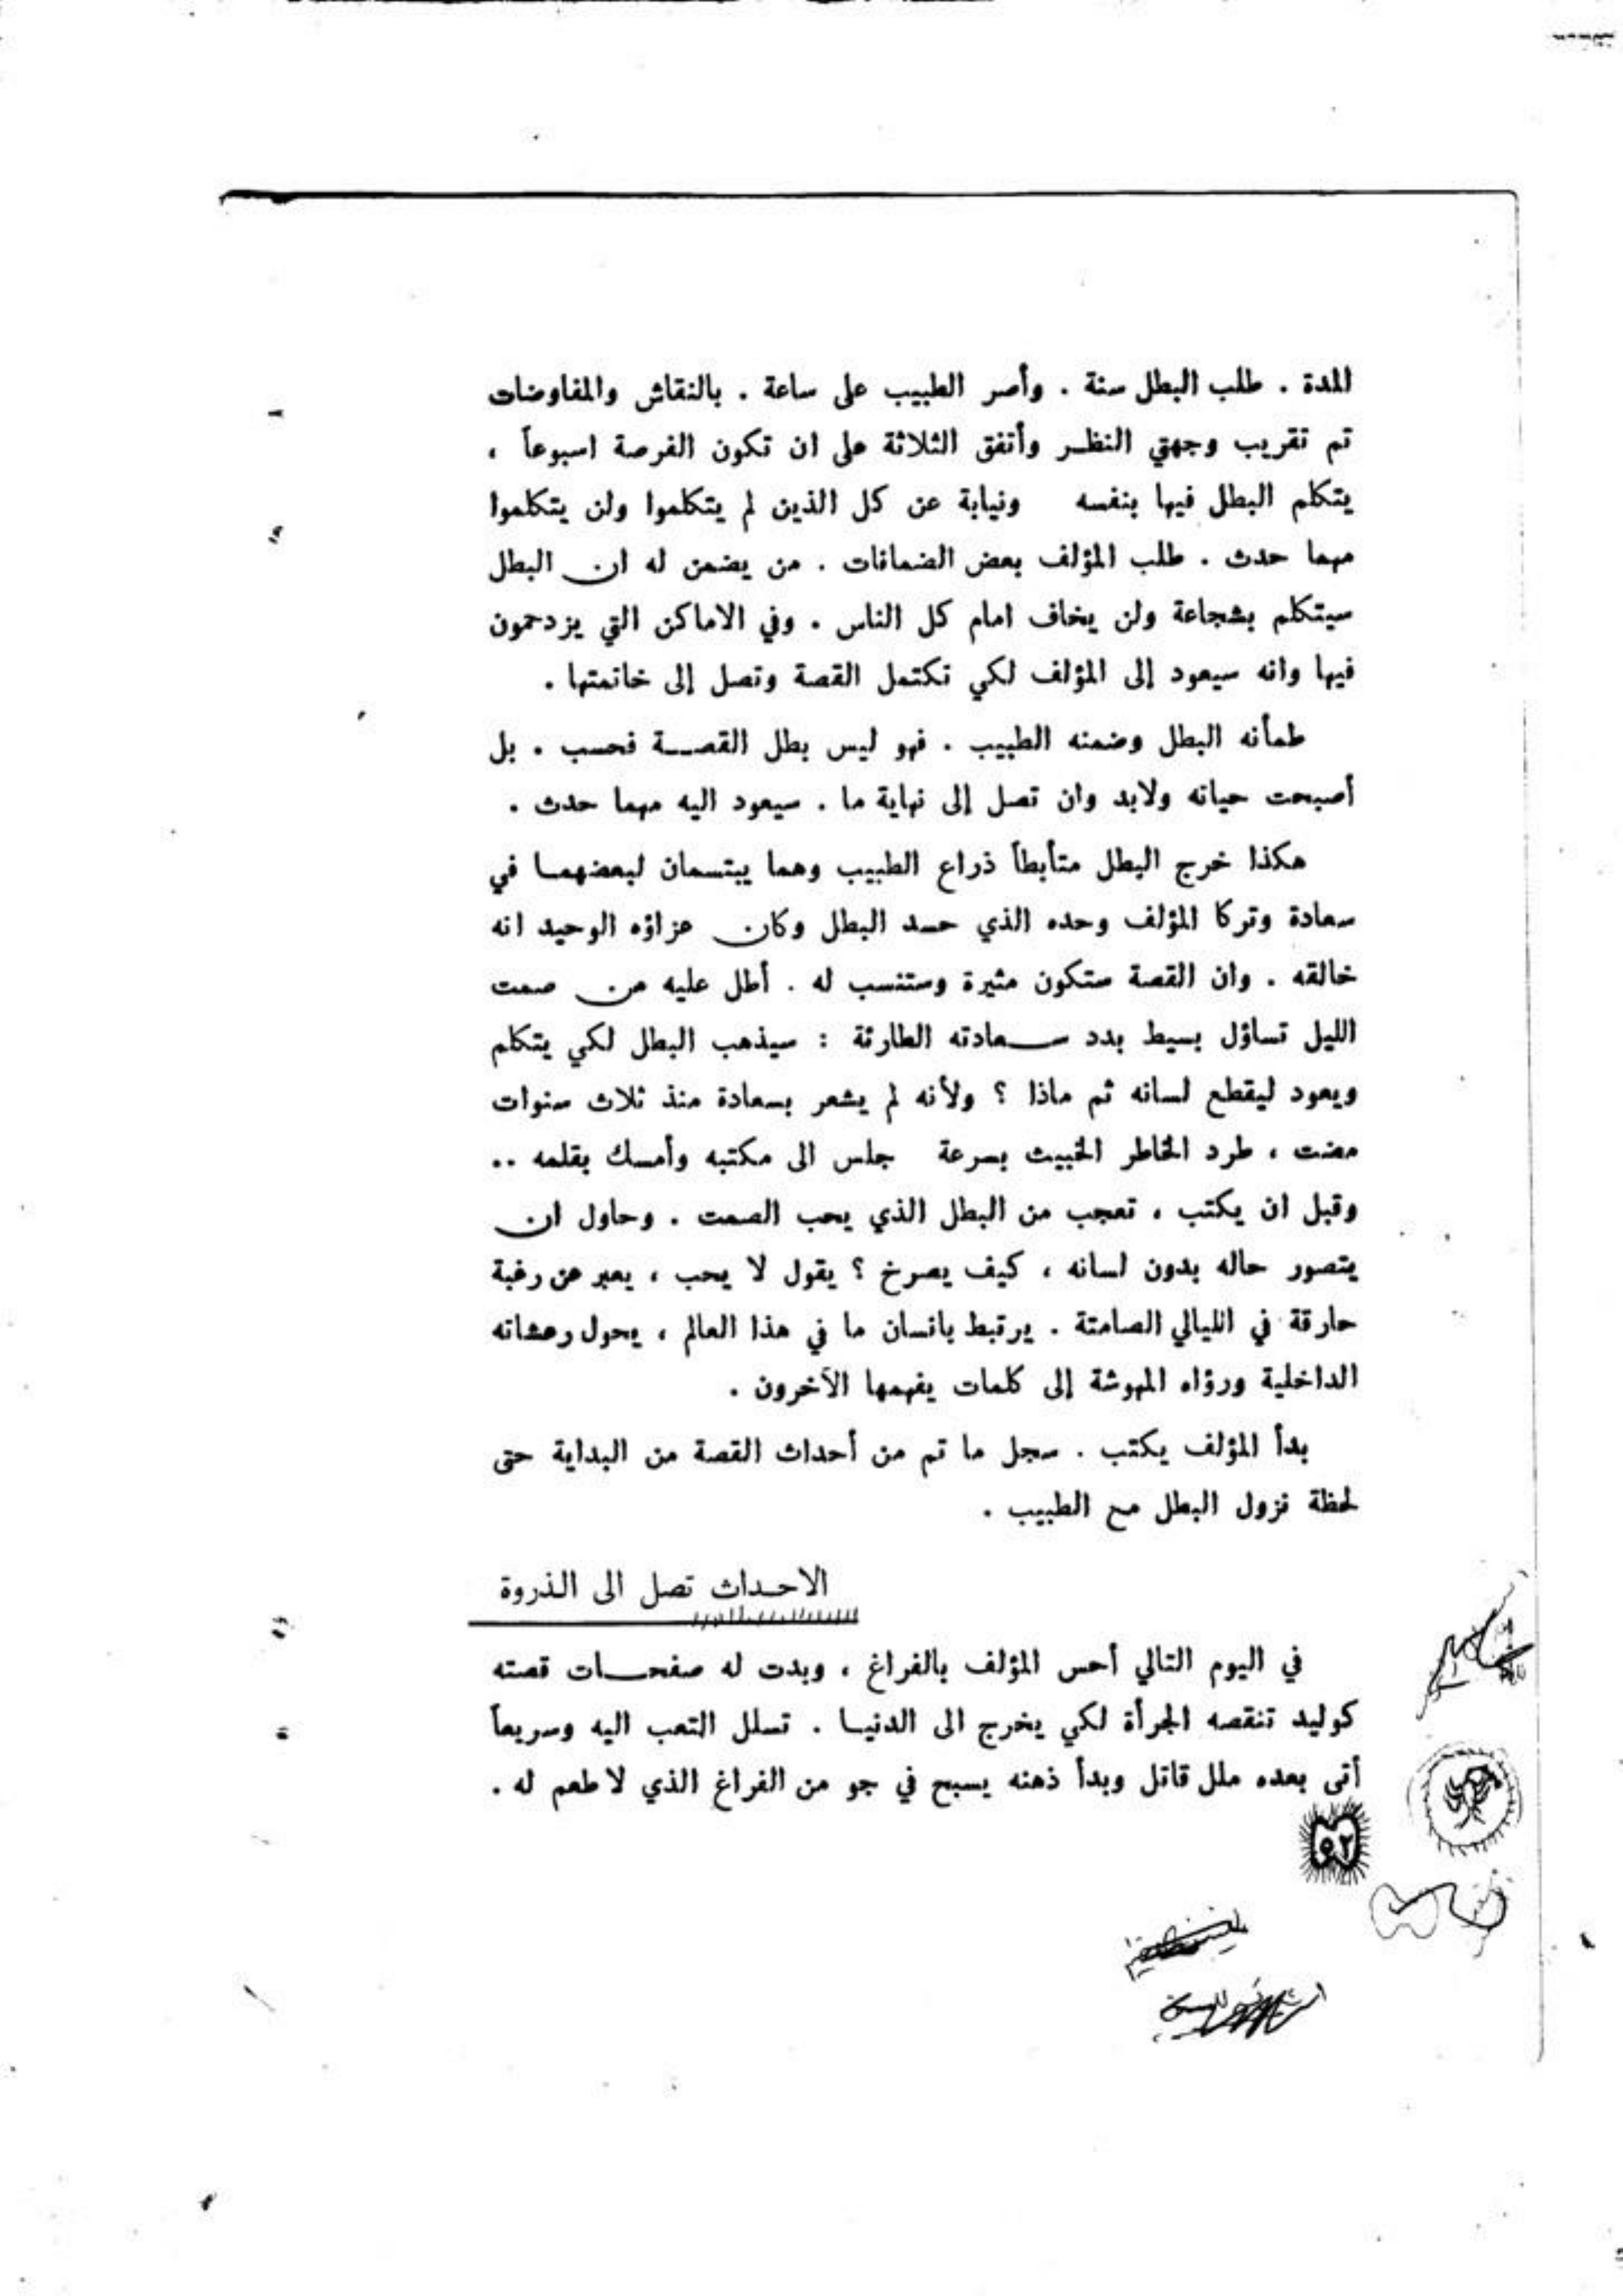 المدة . طلب البطل سنة . وأصر الطبيب على ساعة . بالنقاش والمفاوضات
تم تقريب وجهتي النظر وأتفق الثلاثة على ان تكون الفرصة اسبوعاً ،
يتكلم البطل فيها بنفسه ونيابة عن كل الذين لم يتكلموا ولن يتكلموا
مهما حدث . طلب المؤلف بعض الضمانات . من يضمن له ان البطل
سيتكلم بشجاعة ولن يخاف امام كل الناس . وفي الاماكن التي يزدحمون
فيها وانه سيعود إلى المؤلف لكي تكتمل القصة وتصل إلى خاتمتها .
طمأنه البطل وضمنه الطبيب . فهو ليس بطل القصة فحسب . بل
أصبحت حياته ولابد وان تصل إلى نهاية ما . سيعود اليه مهما حدث .
هكذا خرج البطل متأبطاً ذراع الطبيب وهما يبتسمان لبعضهما في
سعادة وتركا المؤلف وحده الذي حسد البطل وكان عزاؤه الوحيد انه
خالقه . وان القصة ستكون مثيرة وستنسب له . أطل عليه من صمت
الليل تساؤل بسيط بدد سعادته الطارئة : سيذهب البطل لكي يتكلم
ويعود ليقطع لسانه ثم ماذا ؟ ولأنه لم يشعر بسعادة منذ ثلاث سنوات
مضت ، طرد الخاطر الخبيث بسرعة جلس الى مكتبه وأمسك بقلمه ..
وقبل ان يكتب ، تعجب من البطل الذي يحب الصمت . وحاول ان
يتصور حاله بدون لسانه ، كيف يصرخ ؟ يقول لا يحب ، يعبر عن رغبة
حارقة في الليالي الصامتة . يرتبط بانسان ما في هذا العالم ، يحول رعشاته
الداخلية ورؤاه المهوشة إلى كلمات يفهمها الآخرون .
بدأ المؤلف يكتب . سجل ما تم من أحداث القصة من البداية حتى
لحظة نزول البطل مع الطبيب .
الاحداث تصل الى الذروة
في اليوم التالي أحس المؤلف بالفراغ ، وبدت له صفحات قصته
كوليد تنقصه الجرأة لكي يخرج الى الدنيا . تسلل التعب اليه وسريعاً
أتى بعده ملل قاتل وبدأ ذهنه يسبح في جو من الفراغ الذي لا طعم له .
٥٢